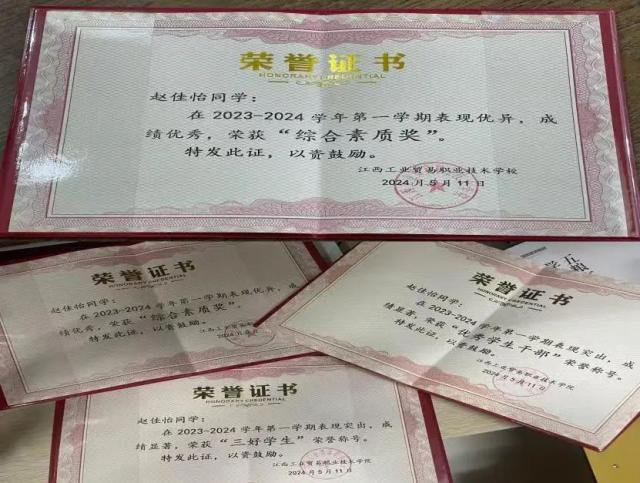 荣誉证书
HONORARY CREDENTIAL
赵佳怡同学:
在2023-2024学年第一学期表现优异,成
绩优秀,荣获“综合素质奖”。
特发此证,以资鼓励。
江西工业贸易职业技术学校
2024年5月11日
荣誉证书
HONORARY CREDENTIAL
赵佳怡同学:
在2023-2024学年第一学期表现优异,成
绩优秀,荣获“综合素质奖”。
特发此证,以资鼓励。
江西工业贸易职业技术学院
荣誉证书
HONORARY CREDENTIAL
赵佳怡同学:
在2023-2024学年第一学期表现突出,成
绩显著,荣获“优秀学生干部”荣誉称号。
特发此证,以资鼓励。
江西工业贸易职业技术学院
2024年5月11日
荣誉证书
HONORARY CREDENTIAL
赵佳怡同学:
在2023-2024学年第一学期表现突出,成
绩显著,荣获“三好学生”荣誉称号。
特发此证,以资鼓励。
江西工业贸易职业技术学院
2024年5月11日